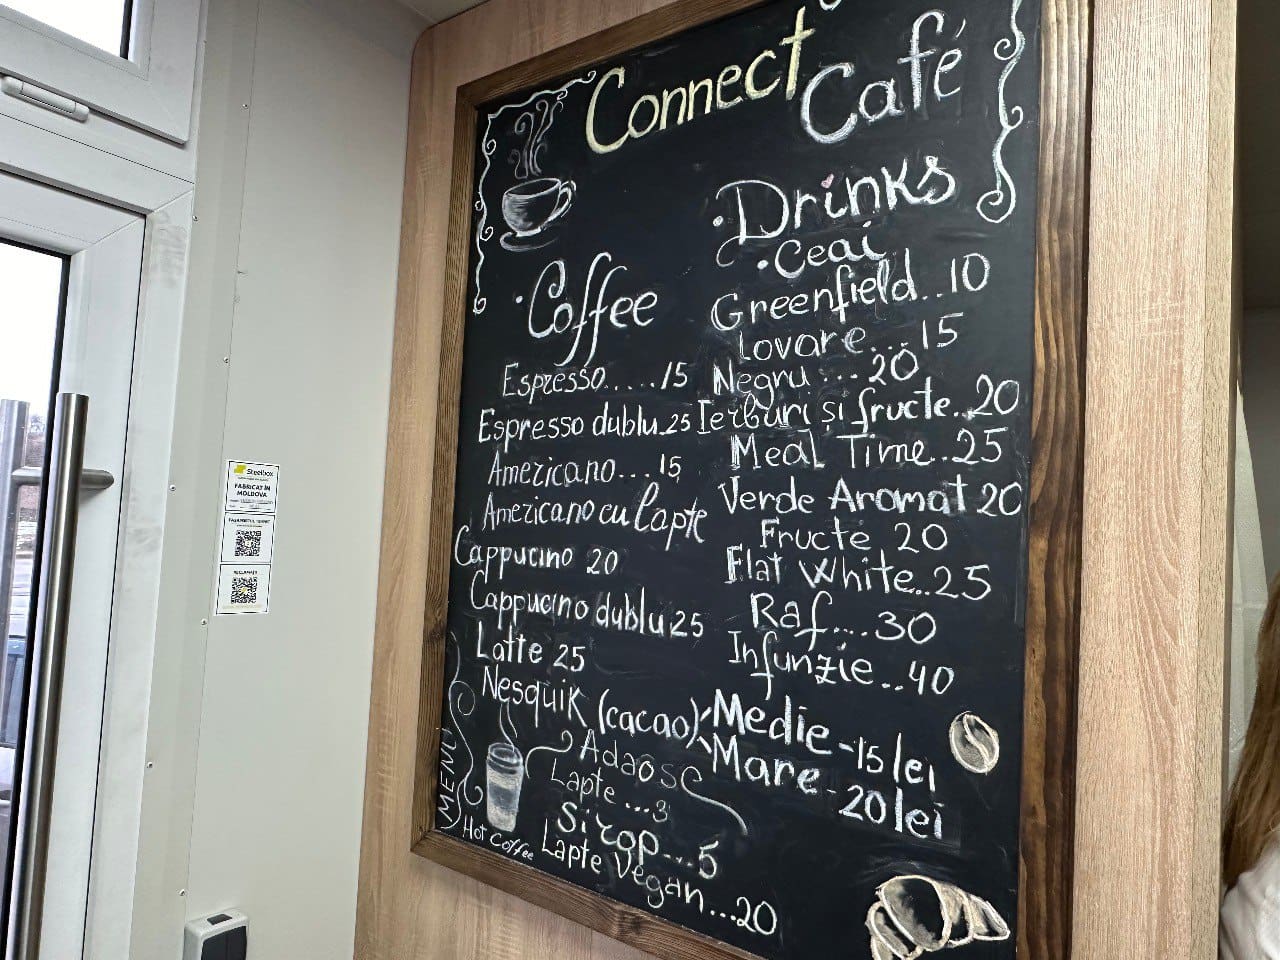 Connect Café
Coffee
Espresso.....15
Espresso dublu.25
Americano...15
Americano cu lapte
Cappucino 20
Cappucino dublu 25
Latte 25
Nesquik (cacao)
Medie - 15 lei
Mare - 20 lei
Adaose
Lapte...3
Sirop...5
Lapte Vegan...20
MENU
Hot Coffee
Drinks
Ceai
Greenfield..10
Lovare...15
Negru...20
Ierburi și fructe..20
Meal Time..25
Verde Aromat 20
Fructe 20
Flat White..25
Raf....30
Infunzie..40
Steelbox
FABRICAT ÎN
MOLDOVA
RECLAMAȚII